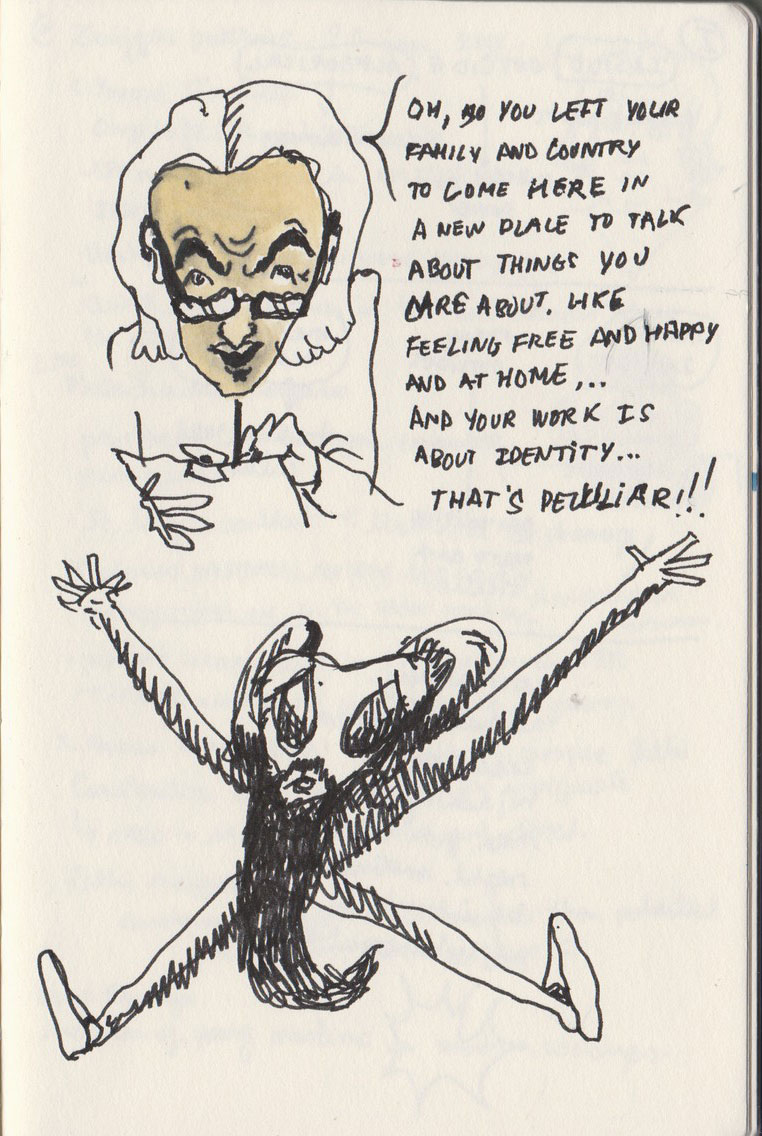 OH, SO YOU LEFT YOUR
FAMILY AND COUNTRY
TO COME HERE IN
A NEW PLACE TO TALK
ABOUT THINGS YOU
CARE ABOUT. LIKE
FEELING FREE AND HAPPY
AND AT HOME,...
AND YOUR WORK IS
ABOUT IDENTITY...
THAT'S PECULIAR!!!